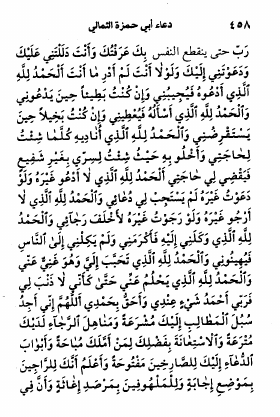 ٤٥٨ دعاء أبي حمزة الثمالي
رَبِّ حتى ينقطع النفس بِكَ عَرَفْتُكَ وَأَنْتَ دَلَلْتَنِي عَلَيْكَ
وَدَعَوْتَنِي إِلَيْكَ وَلَوْلَا أَنْتَ لَمْ أَدْرِ مَا أَنْتَ اَلْحَمْدُ لِلَّهِ
الَّذِي أَدْعُوهُ فَيُجِيبُنِي وَإِنْ كُنْتُ بَطِيئاً حِينَ يَدْعُونِي
وَالْحَمْدُ لِلَّهِ الَّذِي أَسْأَلُهُ فَيُعْطِينِي وَإِنْ كُنْتُ بَخِيلاً حِينَ
يَسْتَقْرِضُنِي وَالْحَمْدُ لِلَّهِ الَّذِي أُنَادِيهِ كُلَّمَا شِئْتُ
لِحَاجَتِي وَأَخْلُو بِهِ حَيْثُ شِئْتُ لِسِرِّي بِغَيْرِ شَفِيعٍ
فَيَقْضِي لِي حَاجَتِي اَلْحَمْدُ لِلَّهِ الَّذِي لَا أَدْعُو غَيْرَهُ وَلَوْ
دَعَوْتُ غَيْرَهُ لَمْ يَسْتَجِبْ لِي دُعَائِي وَالْحَمْدُ لِلَّهِ الَّذِي لَا
أَرْجُو غَيْرَهُ وَلَوْ رَجَوْتُ غَيْرَهُ لَأَخْلَفَ رَجَائِي وَالْحَمْدُ
لِلَّهِ الَّذِي وَكَلَنِي إِلَيْهِ فَأَكْرَمَنِي وَلَمْ يَكِلْنِي إِلَى النَّاسِ
فَيُهِينُونِي وَالْحَمْدُ لِلَّهِ الَّذِي تَحَبَّبَ إِلَيَّ وَهُوَ غَنِيٌّ عَنِّي
وَالْحَمْدُ لِلَّهِ الَّذِي يَحْلُمُ عَنِّي حَتَّى كَأَنِّي لَا ذَنْبَ لِي
فَرَبِّي أَحْمَدُ شَيْءٍ عِنْدِي وَأَحَقُّ بِحَمْدِي اَللَّهُمَّ إِنِّي أَجِدُ
سُبُلَ الْمَطَالِبِ إِلَيْكَ مُشْرَعَةً وَمَنَاهِلَ الرَّجَاءِ لَدَيْكَ
مُتْرَعَةً وَالْاِسْتِعَانَةَ بِفَضْلِكَ لِمَنْ أَمَّلَكَ مُبَاحَةً وَأَبْوَابَ
الدُّعَاءِ إِلَيْكَ لِلصَّارِخِينَ مَفْتُوحَةً وَأَعْلَمُ أَنَّكَ لِلرَّاجِينَ
بِمَوْضِعِ إِجَابَةٍ وَلِلْمَلْهُوفِينَ بِمَرْصَدِ إِغَاثَةٍ وَأَنَّ فِي